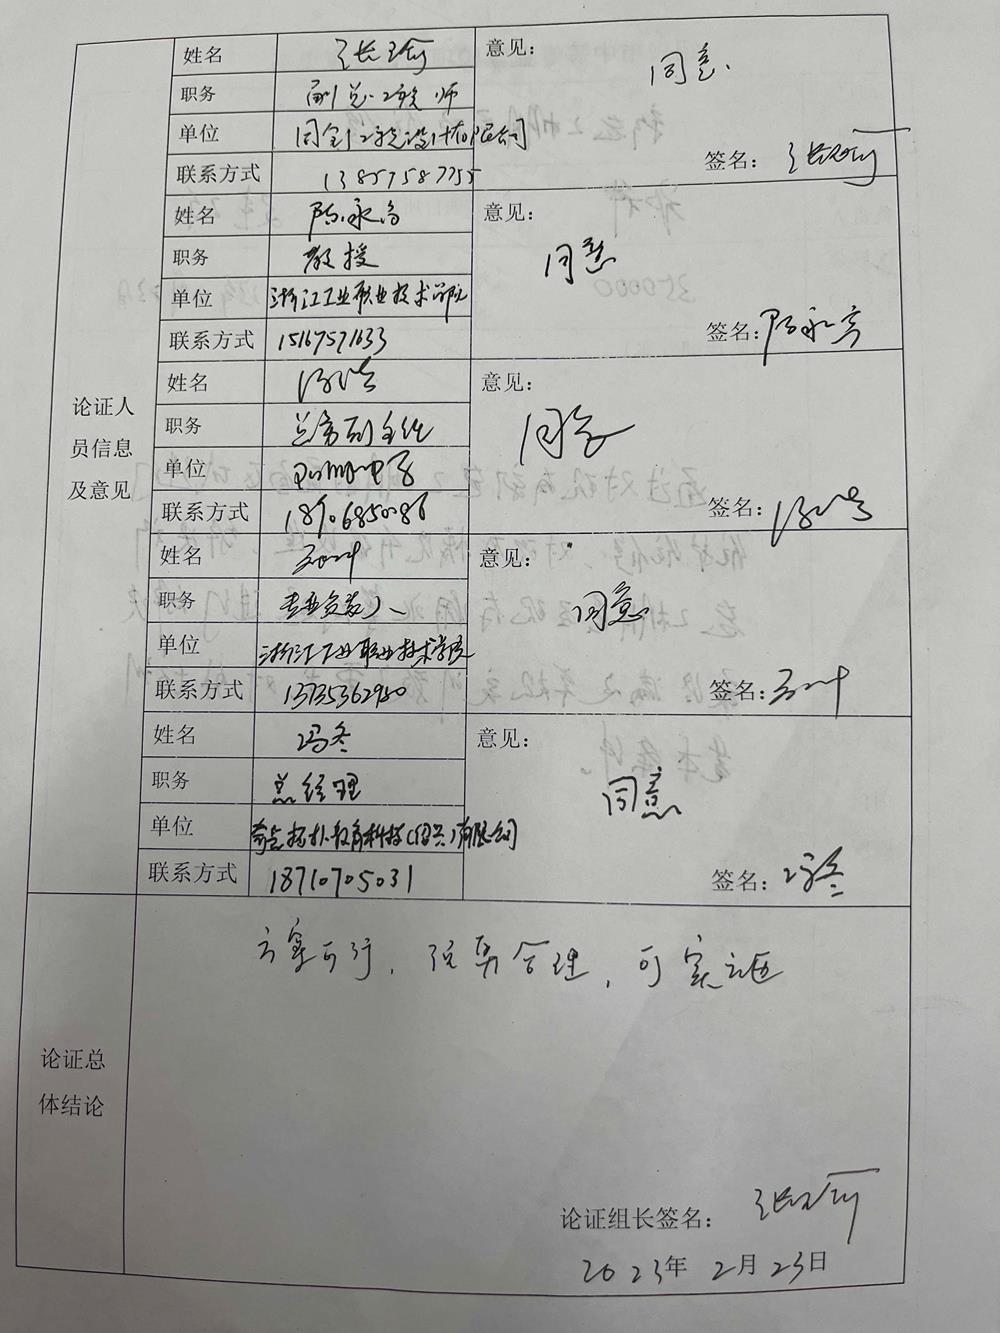 姓名 张瑜 意见：
同意.
职务 副总工程师
单位 同创工程设计有限公司
签名：张瑜
联系方式 13857587755
姓名 陈永高 意见：
职务 教授 同意
单位 浙江工业职业技术学院
联系方式 15167571633 签名：陈永高
论证人
员信息
及意见
姓名 意见：
职务 总务副主任 同意
单位
联系方式 签名：
姓名 意见：
职务 专业负责人 同意
单位 浙江工业职业技术学院
联系方式 13735362950 签名：
姓名 冯冬 意见：
职务 总经理 同意
单位 奇点拓扑教育科技(绍兴)有限公司
联系方式 18710705031 签名：冯冬
论证总
体结论
方案可行，预算合理，可实施
论证组长签名：张瑜
2023年 2月23日